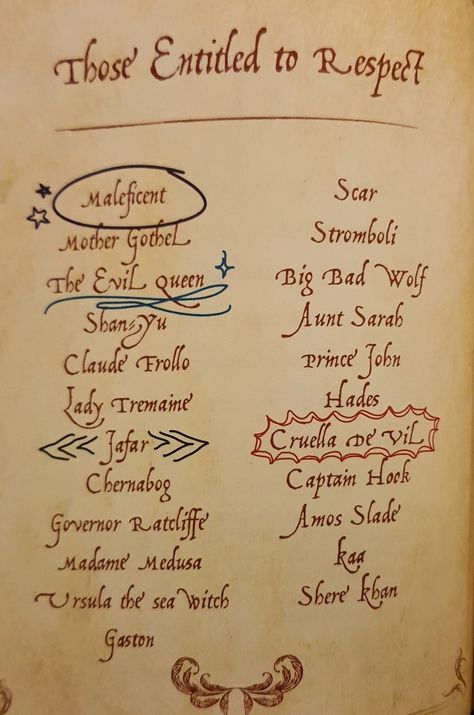 Those Entitled to Respect
Maleficent
Mother Gothel
The Evil Queen
Shan-Yu
Claude Frollo
Lady Tremaine
Jafar
Chernabog
Governor Ratcliffe
Madame Medusa
Ursula the sea Witch
Gaston
Scar
Stromboli
Big Bad Wolf
Aunt Sarah
Prince John
Hades
Cruella De Vil
Captain Hook
Amos Slade
kaa
Shere khan